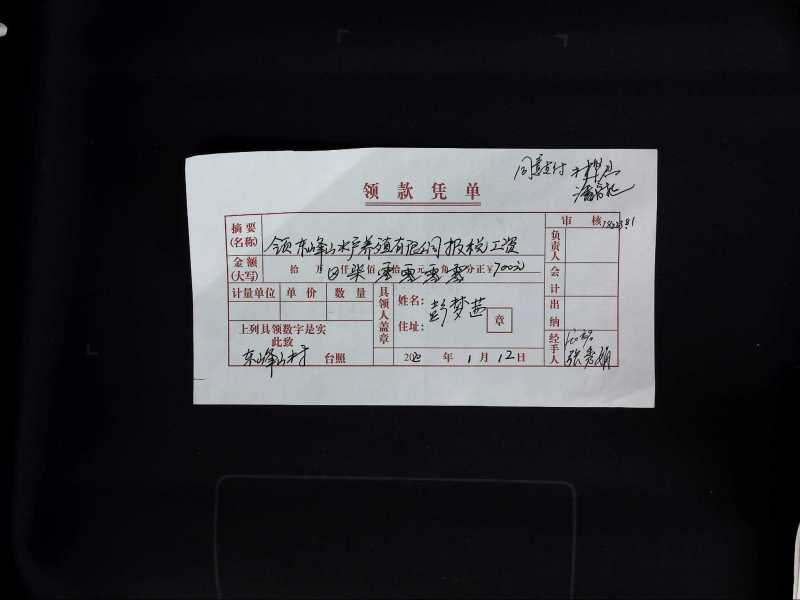 同意支付
领款凭单
审 核
摘要
(名称)
领东峰山水产养殖有限公司报税工资
负责人
金额
(大写)
拾 万 仟 柒 佰 零 拾 零 元 零 角 零 分正￥700元
会计
计量单位 单价 数量
具领人盖章
姓名：彭梦茜
住址：
章
出纳
上列具领数字是实
此致
东峰山村 台照
2020 年 1 月 12 日
经手人
张秀娟